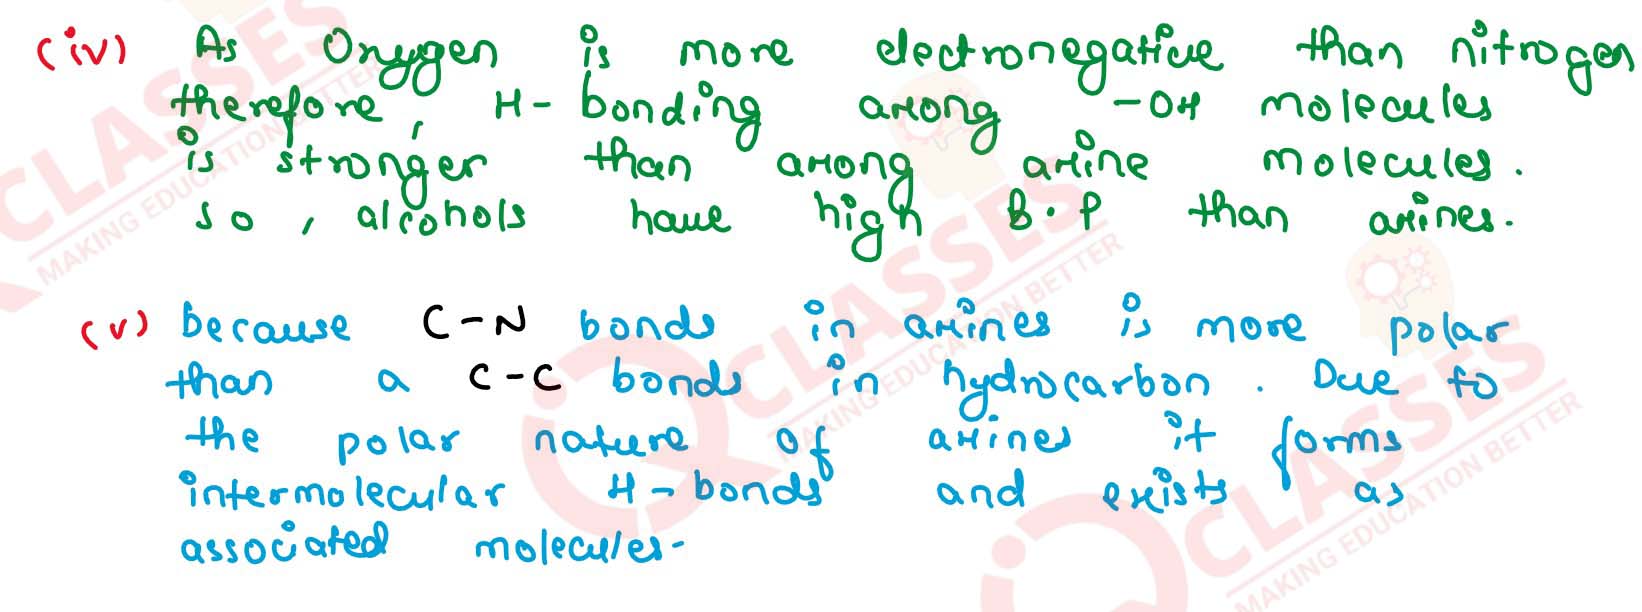 (iv) As Oxygen is more electronegative than nitrogen
therefore, H- bonding among -OH molecules
is stronger than among amine molecules.
so, alcohols have high B.P than amines.
(v) because C-N bonds in amines is more polar
than a C-C bonds in hydrocarbon. Due to
the polar nature of amines it forms
intermolecular H-bonds and exists as
associated molecules-
CLASSES
MAKING EDUCATION BETTER
CLASSES
MAKING EDUCATION BETTER
CLASSES
MAKING EDUCATION BETTER